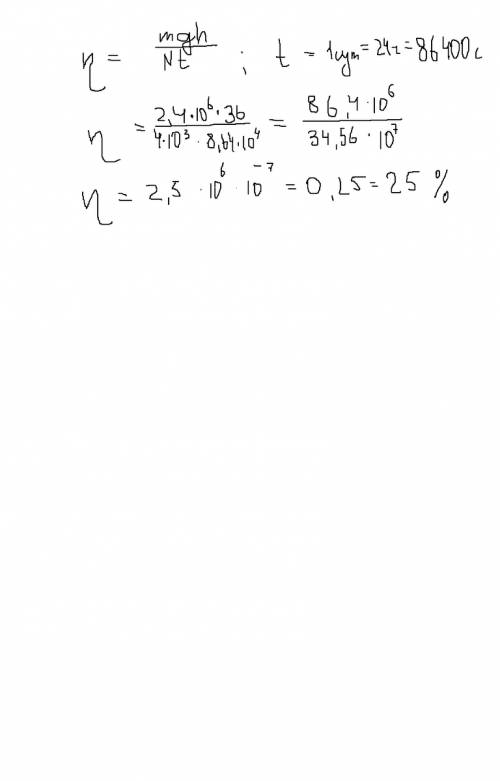 η = mgh / Nt ; t - 1сут = 24ч = 86400с
η = 2,4·10⁶·36 / 4·10³·8,64·10⁴ = 86,4·10⁶ / 34,56·10⁷
η = 2,5·10⁶·10⁻⁷ = 0,25 = 25 %